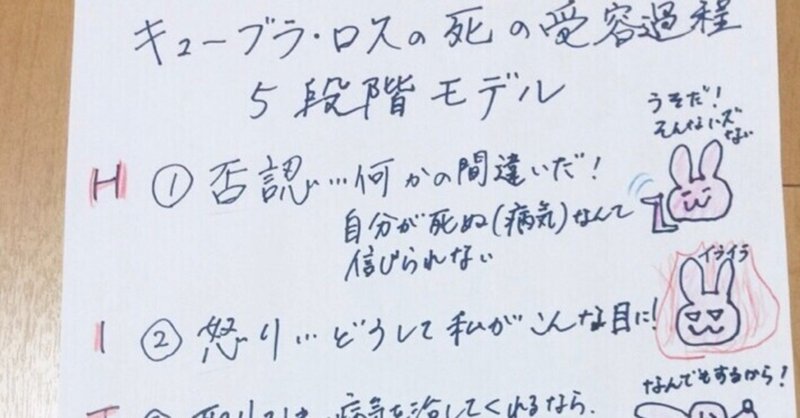 キューブラ・ロスの死の受容過程
5段階モデル
うそだ!
そんなハズ
ない
H ① 否認…何かの間違いだ!
自分が死ぬ(病気)なんて
信じられない
イライラ
I ② 怒り…どうして私がこんな目に!
なんでもするから!
病気を治してくれるなら、